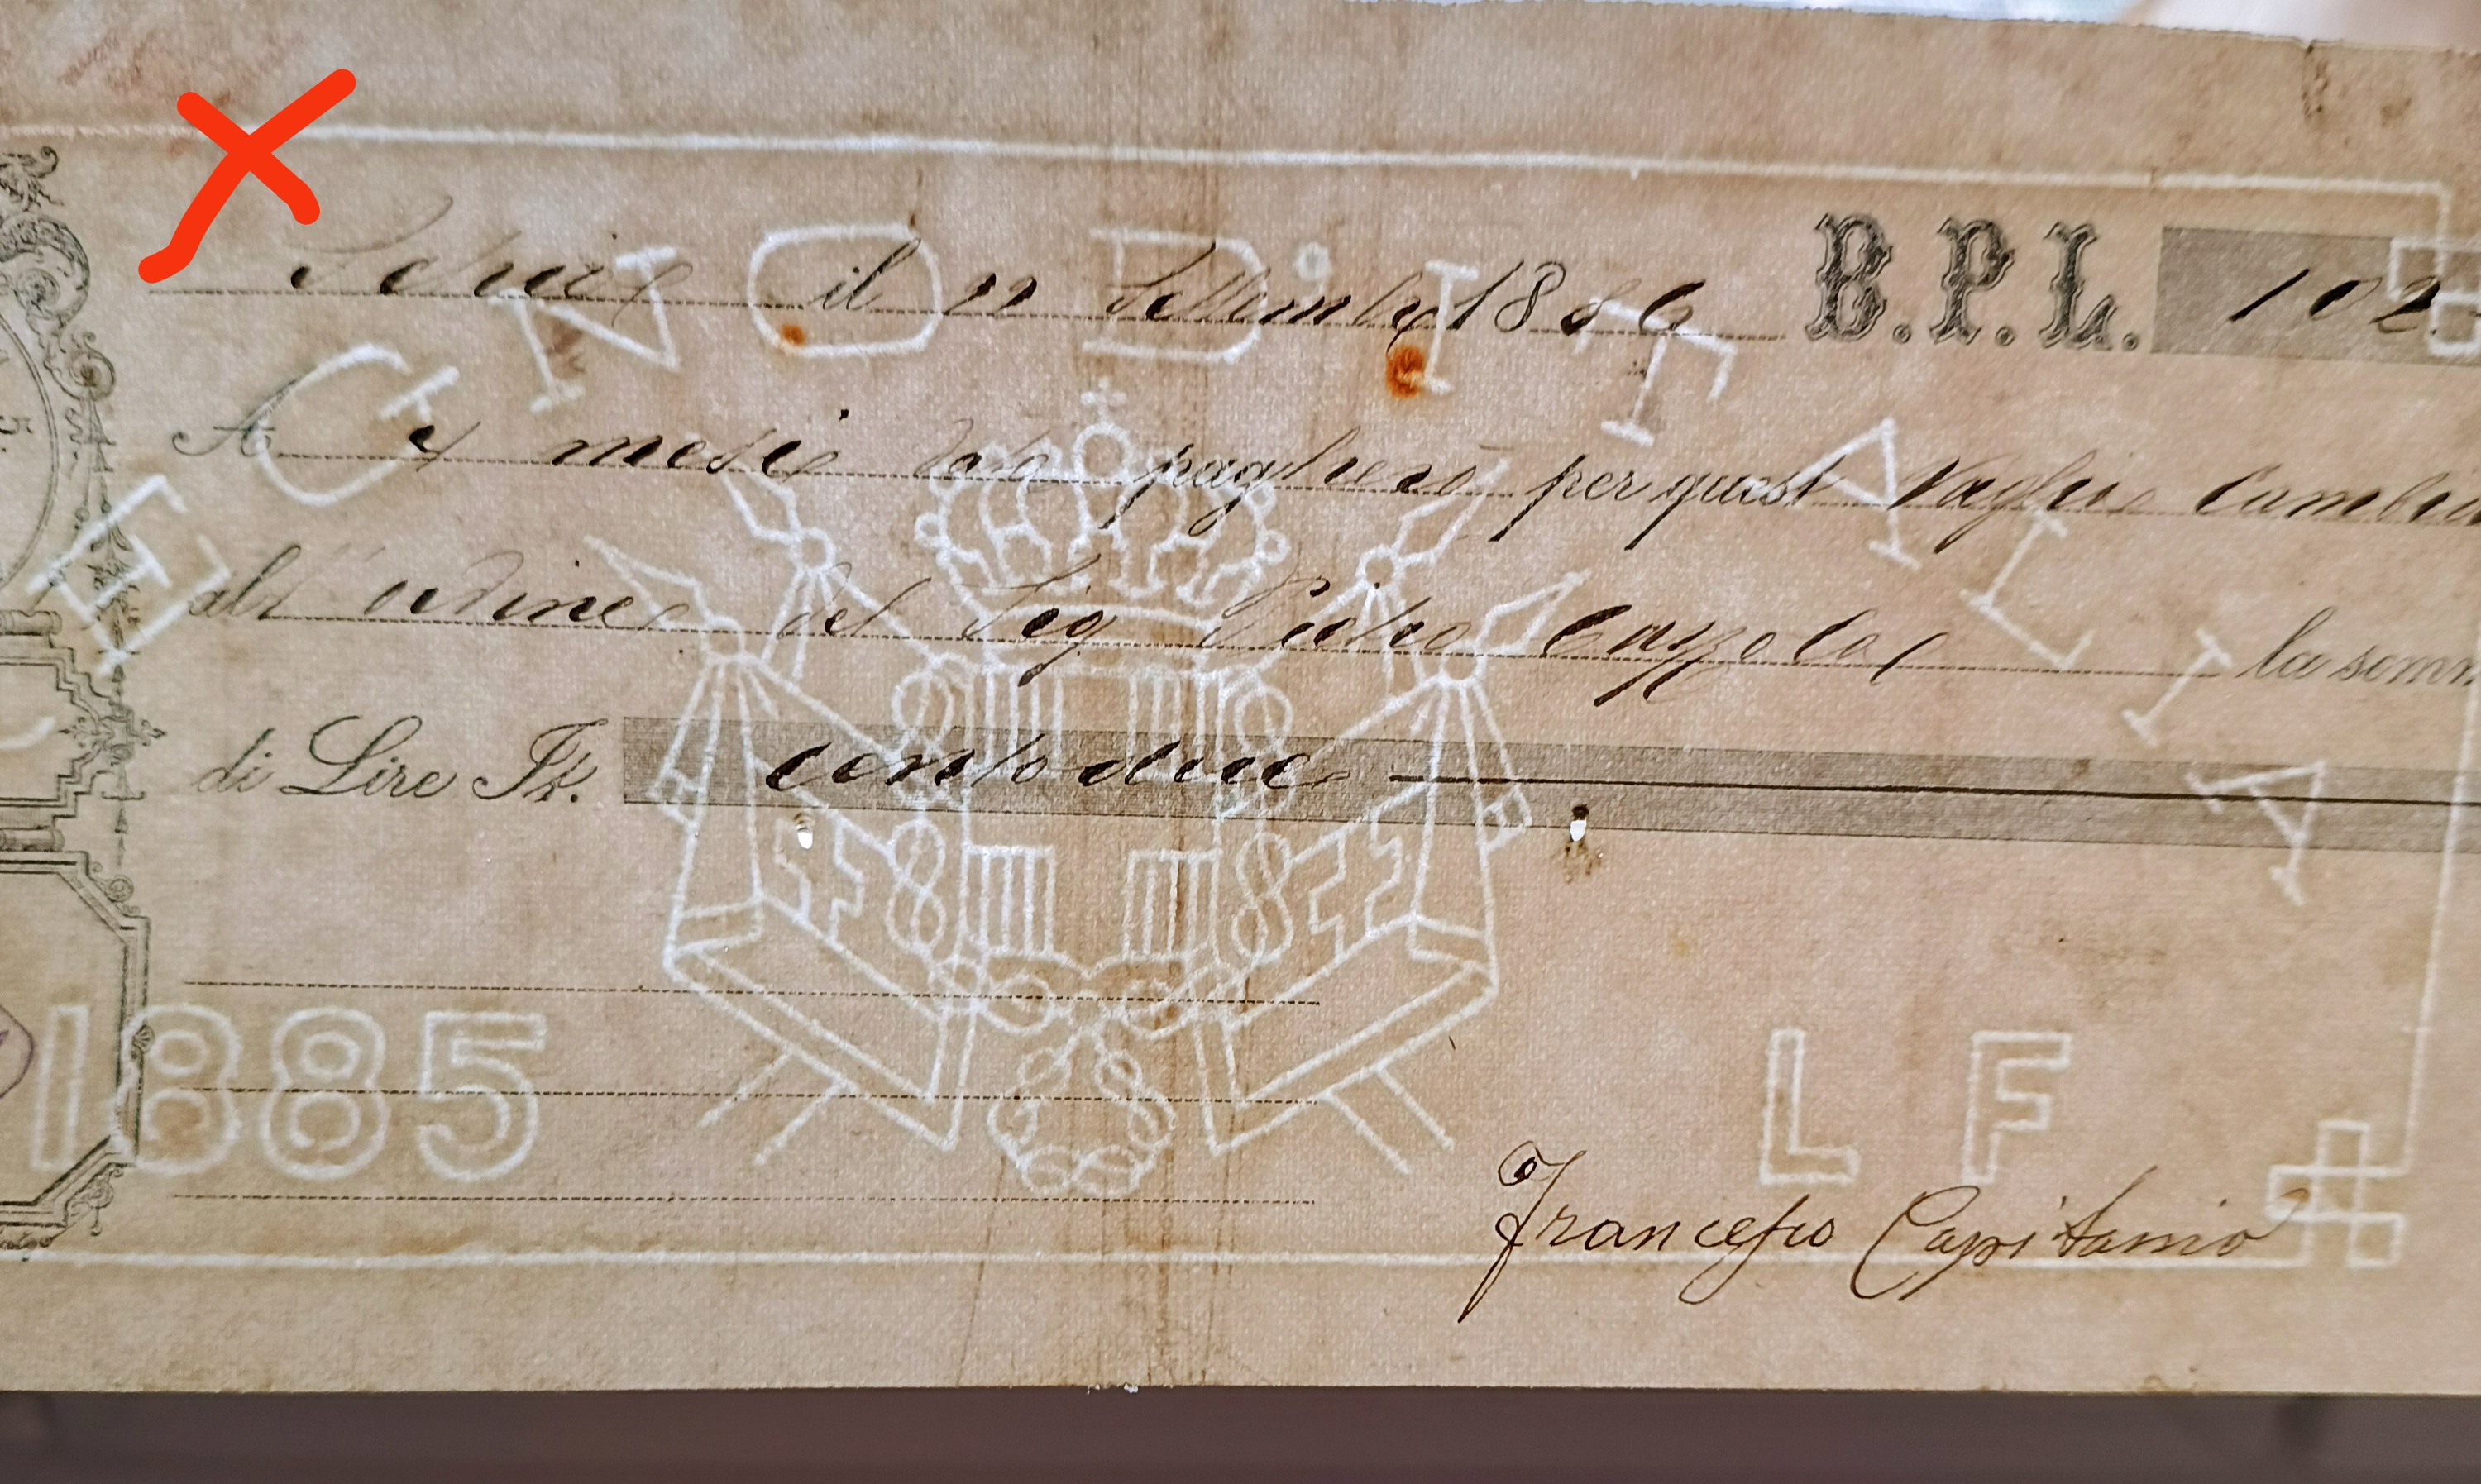 il 22 Settembre 1886 B.P.L. 102
A 4 mesi data pagherò per questo Vaglia Cambia
all'ordine del Sig Pietro la somm
di Lire It. centodue
REGNO D'ITALIA
1885
L F
Francesco Capitanio